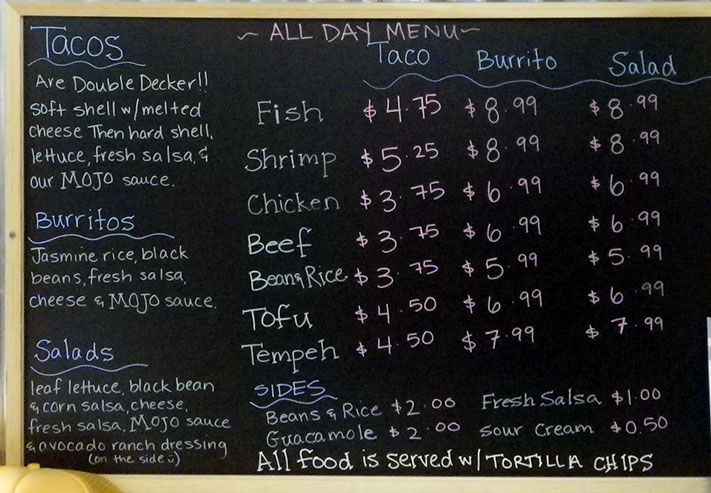 ~ ALL DAY MENU ~
Tacos
Are Double Decker!!
soft shell w/melted
cheese Then hard shell,
lettuce, fresh salsa, &
our MOJO sauce.
Burritos
Jasmine rice, black
beans, fresh salsa,
cheese & MOJO sauce.
Salads
leaf lettuce, black bean
& corn salsa, cheese,
fresh salsa, MOJO sauce
& avocado ranch dressing
(on the side ü)
Taco Burrito Salad
Fish $4.75 $8.99 $8.99
Shrimp $5.25 $8.99 $8.99
Chicken $3.75 $6.99 $6.99
Beef $3.75 $6.99 $6.99
Bean & Rice $3.75 $5.99 $5.99
Tofu $4.50 $6.99 $6.99
Tempeh $4.50 $7.99 $7.99
SIDES
Beans & Rice $2.00 Fresh Salsa $1.00
Guacamole $2.00 Sour Cream $0.50
All food is served w/ TORTILLA CHIPS